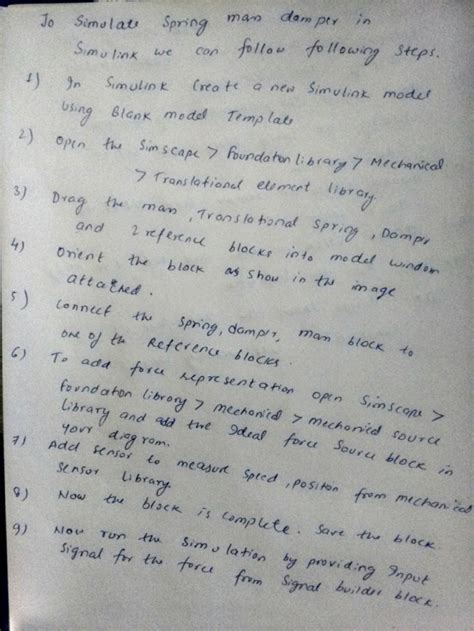 To Simulate Spring man damper in
Simulink we can follow following steps.
1) In Simulink Create a new Simulink model
using Blank model Template
2) Open the Simscape > Foundaton library > Mechanical
> Translational element library.
3) Drag the man, Translational spring, Dampr
and 2 reference blocks into model window
4) Orient the block as show in the image
attached.
5) Connect the spring, dampr, man block to
one of the Reference blocks.
6) To add force representation open Simscape >
foundation library > mechanical > mechanical source
Library and add the Ideal force Source block in
your diagram.
7) Add sensor to measure speed, position from mechanical
sensor Library
8) Now the block is complete. Save the block.
9) Now run the simulation by providing Input
Signal for the force from Signal builder block.